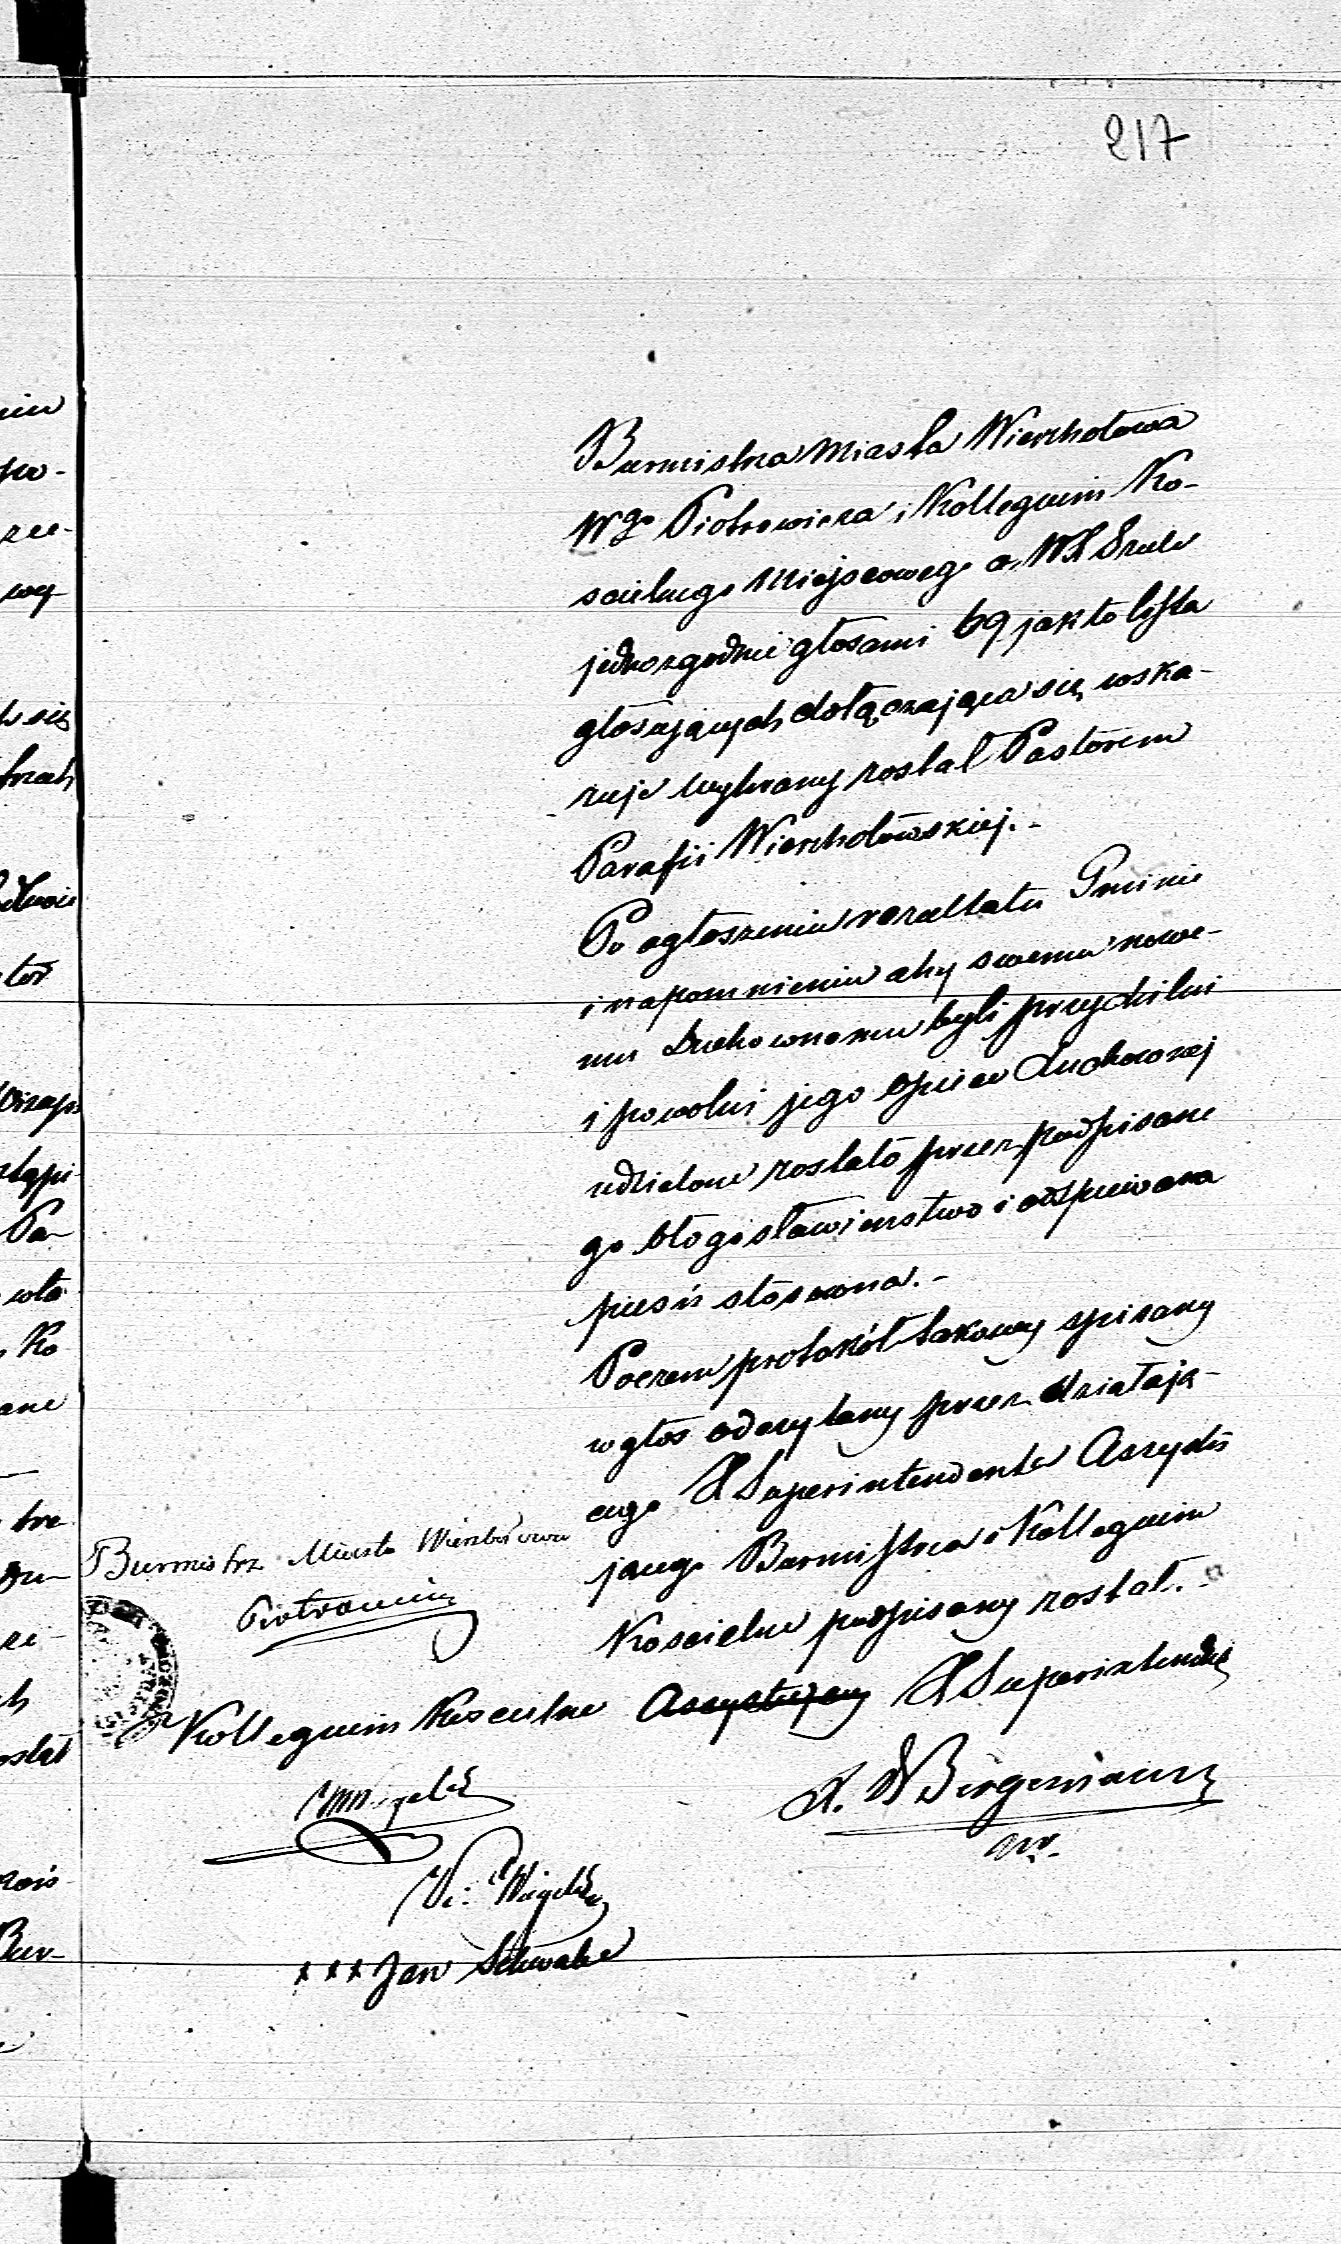 217
Burmistrza Miasta Wierzbołowa
Wgo Piotrowicza i Kollegium Ko-
scielnego Miejscowego a WX Szulc
jednozgodnie głosami 69 jak to lysta
głosujących dołączająca się wska-
zuje wybrany został Pastorem
Parafii Wierzbołowskiej.-
Po ogłoszeniu rezultatu Gminie
i napomnieniu aby swemu nowe-
mu Duchownemu byli przychilni
i powolni jego opiece duchownej
udzielone zostało przez podpisane
go błogosławienstwo i odspiewana
piesń stosowna.-
Poczem protokół takowy spisany
w głos odczytany przez działają-
cego X Superintendenta Assystu
jącego Burmistrza i Kollegium
Koscielne podpisany został.-
Burmistrz Miasta Wierzbołowa
Piotrowicz
Kollegium Koscielne Assystujący X Superintendent
X. Bergemann
Wagelis
xxx Jan Schwabe
niu
po-
wy
się
tor
Pa-
Ko
ane
Bur-